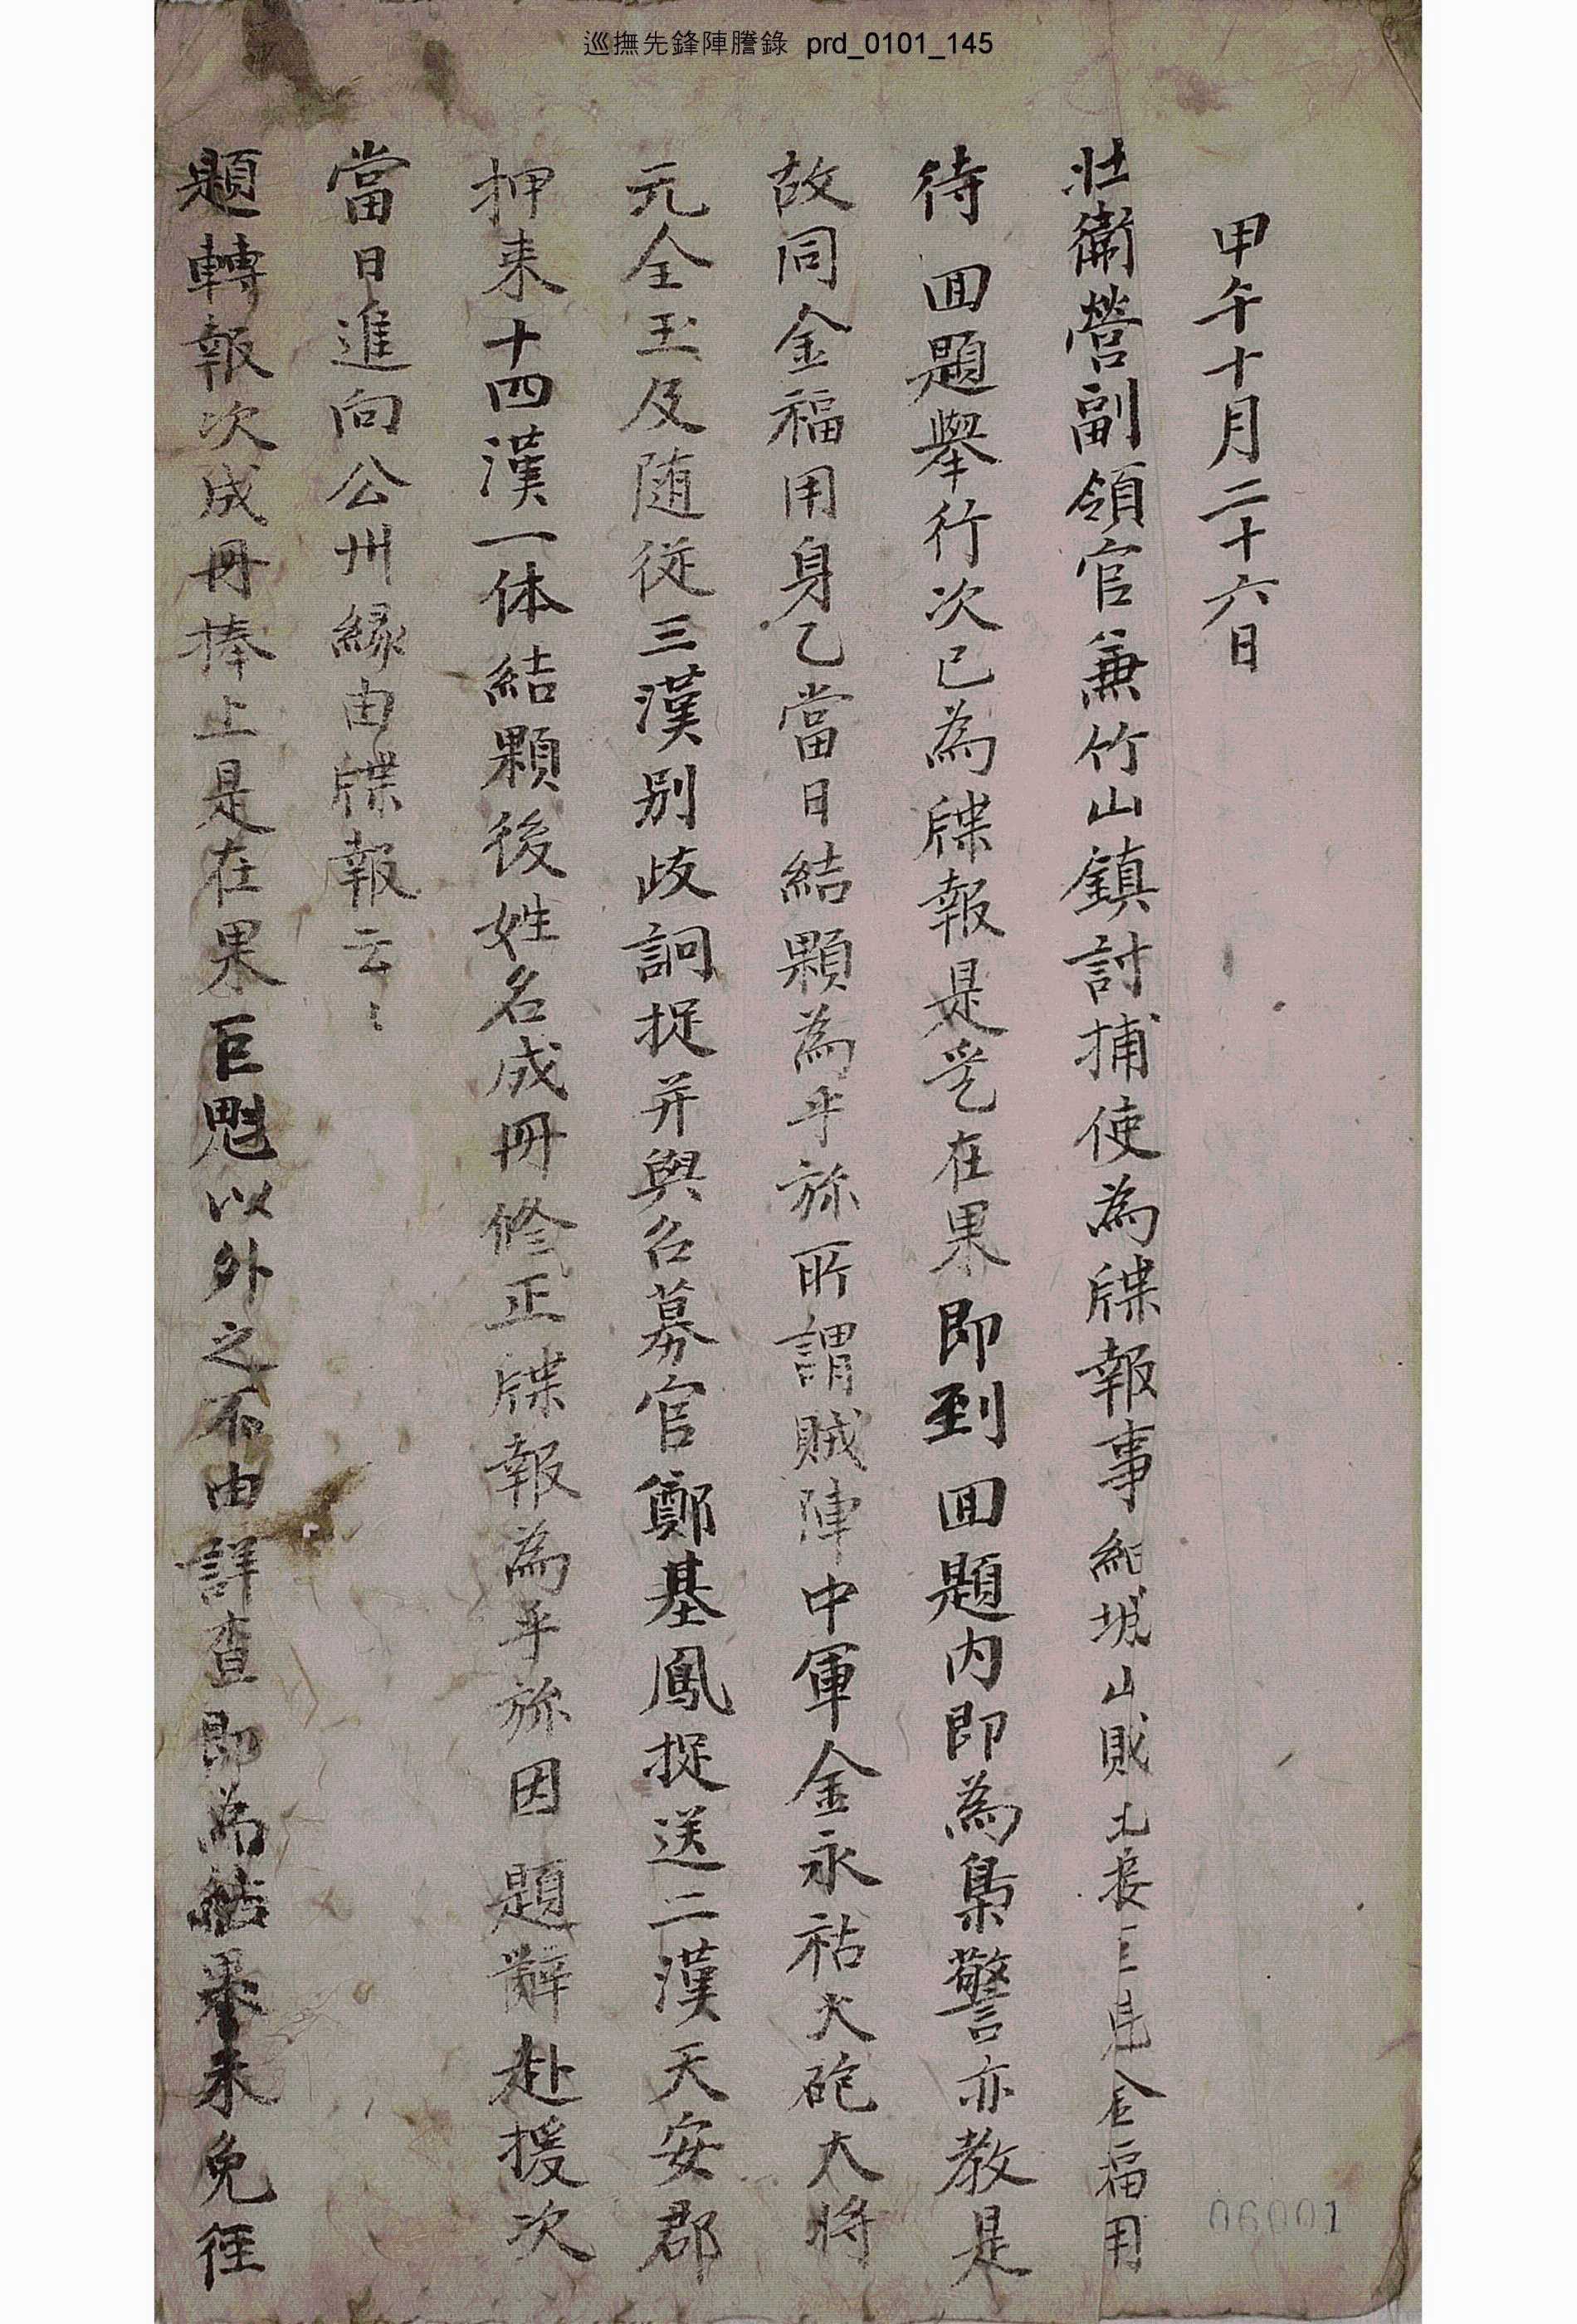 巡撫先鋒陣謄錄 prd_0101_145
甲午十月二十六日
壯衛營副領官兼竹山鎮討捕使為牒報事細城山賊北接主見金福用
待 回題舉行次已為牒報是乎在果即到 回題內即為梟警亦教是
故同金福用身乙當日結顆為乎旀所謂賊陣中軍金永祐火砲大將
元全玉及随從三漢別岐詗捉并與召募官鄭基鳳捉送二漢天安郡
押来十四漢一体結顆後姓名成冊修正牒報為乎旀因 題辭赴援次
當日進向公州緣由牒報云〻
題轉報次成冊捧上是在果巨魁以外之不由詳查即為結果未免徑
06001